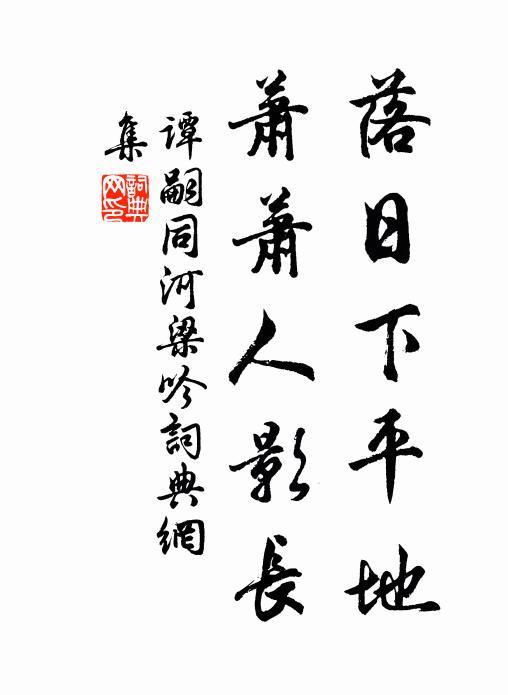 落日下平地
蕭蕭人影長
谭嗣同河梁吟詞典網
集
詞典
网印